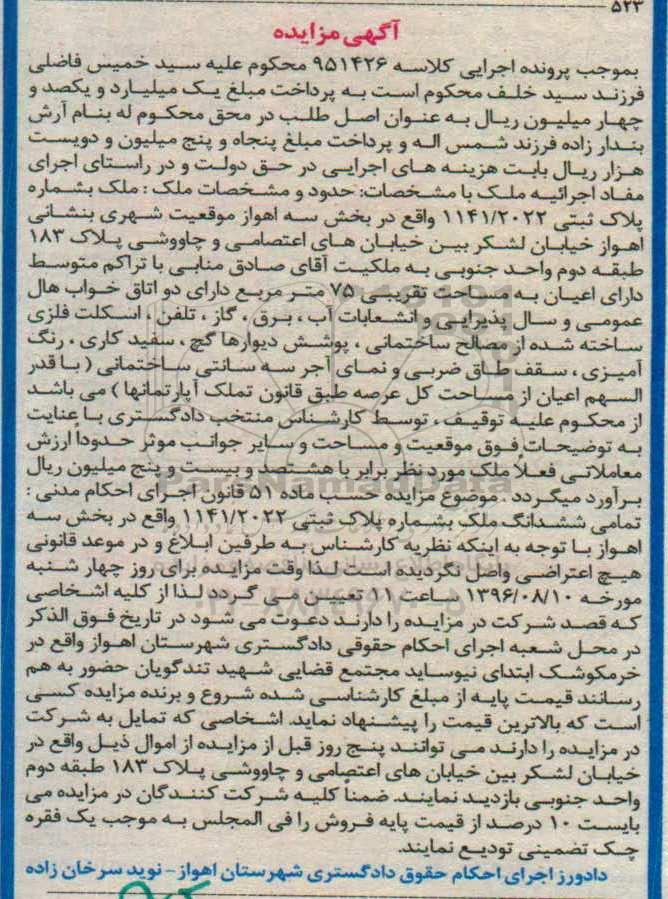 ۵۲۳
آگهی مزایده
بموجب پرونده اجرایی کلاسه ۹۵۱۴۲۶ محکوم علیه سید خمیس فاضلی
فرزند سید خلف محکوم است به پرداخت مبلغ یک میلیارد و یکصد و
چهار میلیون ریال به عنوان اصل طلب در محق محکوم له بنام آرش
بندار زاده فرزند شمس اله و پرداخت مبلغ پنجاه و پنج میلیون و دویست
هزار ریال بابت هزینه های اجرایی در حق دولت و در راستای اجرای
مفاد اجرائیه ملک با مشخصات: حدود و مشخصات ملک : ملک بشماره
پلاک ثبتی ۱۱۴۱/۲۰۲۲ واقع در بخش سه اهواز موقعیت شهری بنشانی
اهواز خیابان لشکر بین خیابان های اعتصامی و چاووشی پلاک ۱۸۳
طبقه دوم واحد جنوبی به ملکیت آقای صادق منابی با تراکم متوسط
دارای اعیان به مساحت تقریبی ۷۵ متر مربع دارای دو اتاق خواب هال
عمومی و سال پذیرایی و انشعابات آب ، برق ، گاز ، تلفن ، اسکلت فلزی
ساخته شده از مصالح ساختمانی ، پوشش دیوارها گچ ، سفید کاری ، رنگ
آمیزی ، سقف طاق ضربی و نمای آجر سه سانتی ساختمانی ( با قدر
السهم اعیان از مساحت کل عرصه طبق قانون تملک آپارتمانها ) می باشد
از محکوم علیه توقیف ، توسط کارشناس منتخب دادگستری با عنایت
به توضیحات فوق موقعیت و مساحت و سایر جوانب موثر حدوداً ارزش
معاملاتی فعلاً ملک مورد نظر برابر با هشتصد و بیست و پنج میلیون ریال
برآورد میگردد . موضوع مزایده حسب ماده ۵۱ قانون اجرای احکام مدنی :
تمامی ششدانگ ملک بشماره پلاک ثبتی ۱۱۴۱/۲۰۲۲ واقع در بخش سه
اهواز با توجه به اینکه نظریه کارشناس به طرفین ابلاغ و در موعد قانونی
هیچ اعتراضی واصل نگردیده است لذا وقت مزایده برای روز چهار شنبه
مورخه ۱۳۹۶/۰۸/۱۰ ساعت ۱۱ تعیین می گردد لذا از کلیه اشخاصی
که قصد شرکت در مزایده را دارند دعوت می شود در تاریخ فوق الذکر
در محل شعبه اجرای احکام حقوقی دادگستری شهرستان اهواز واقع در
خرمکوشک ابتدای نیوساید مجتمع قضایی شهید تندگویان حضور به هم
رسانند قیمت پایه از مبلغ کارشناسی شده شروع و برنده مزایده کسی
است که بالاترین قیمت را پیشنهاد نماید. اشخاصی که تمایل به شرکت
در مزایده را دارند می توانند پنج روز قبل از مزایده از اموال ذیل واقع در
خیابان لشکر بین خیابان های اعتصامی و چاووشی پلاک ۱۸۳ طبقه دوم
واحد جنوبی بازدید نمایند. ضمناً کلیه شرکت کنندگان در مزایده می
بایست ۱۰ درصد از قیمت پایه فروش را فی المجلس به موجب یک فقره
چک تضمینی تودیع نمایند.
دادورز اجرای احکام حقوق دادگستری شهرستان اهواز - نوید سرخان زاده
ParsNamadData
۰۲۱-۸۸۳۴۹۶۷۰-۵